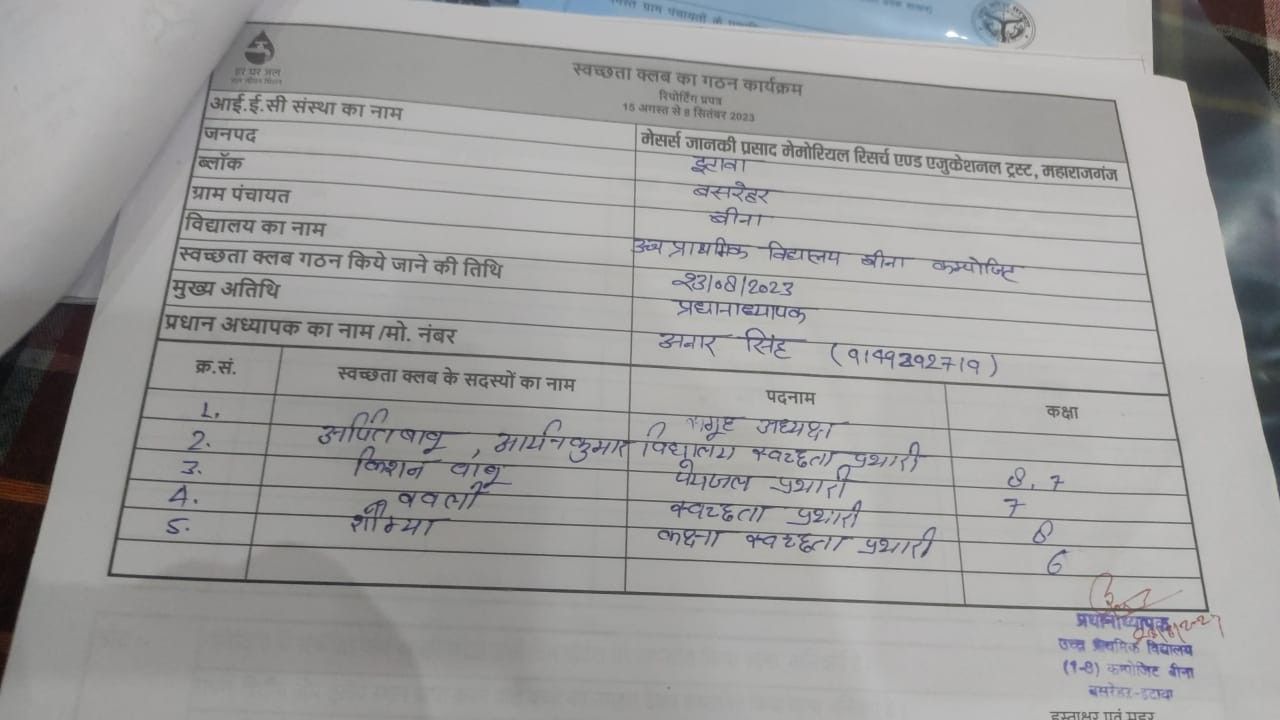 ग्राम पंचायतों के
हर घर जल
जल जीवन मिशन
स्वच्छता क्लब का गठन कार्यक्रम
रिपोर्टिंग प्रपत्र
15 अगस्त से 8 सितंबर 2023
आई.ई.सी संस्था का नाम मेसर्स जानकी प्रसाद मेमोरियल रिसर्च एण्ड एजुकेशनल ट्रस्ट, महाराजगंज
जनपद इटावा
ब्लॉक बसरेहर
ग्राम पंचायत बीना
विद्यालय का नाम उच्च प्राथमिक विद्यालय बीना कम्पोजिट
स्वच्छता क्लब गठन किये जाने की तिथि 23/08/2023
मुख्य अतिथि प्रधानाध्यापक
प्रधान अध्यापक का नाम /मो. नंबर अनार सिंह
क्र.सं. स्वच्छता क्लब के सदस्यों का नाम पदनाम कक्षा
1. समूह अध्यक्ष
2. अर्पित बाबू , आर्यन कुमार विद्यालय स्वच्छता प्रभारी 8, 7
3. किशन बाबू पेयजल प्रभारी 7
4. स्वच्छता प्रभारी 8
5. शौम्या कक्षा स्वच्छता प्रभारी 6
प्रधानाध्यापक
उच्च प्राथमिक विद्यालय
(1-8) कम्पोजिट बीना
बसरेहर-इटावा
हस्ताक्षर एवं मुहर